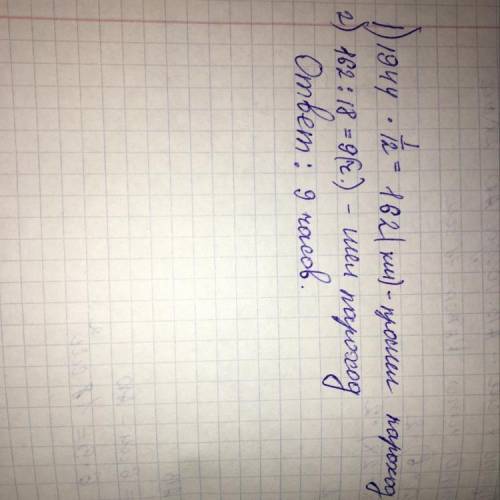 1) 1944 · 1/12 = 162 (км) - прошёл пароход
2) 162 : 18 = 9 (ч.) - шёл пароход
Ответ: 9 часов.